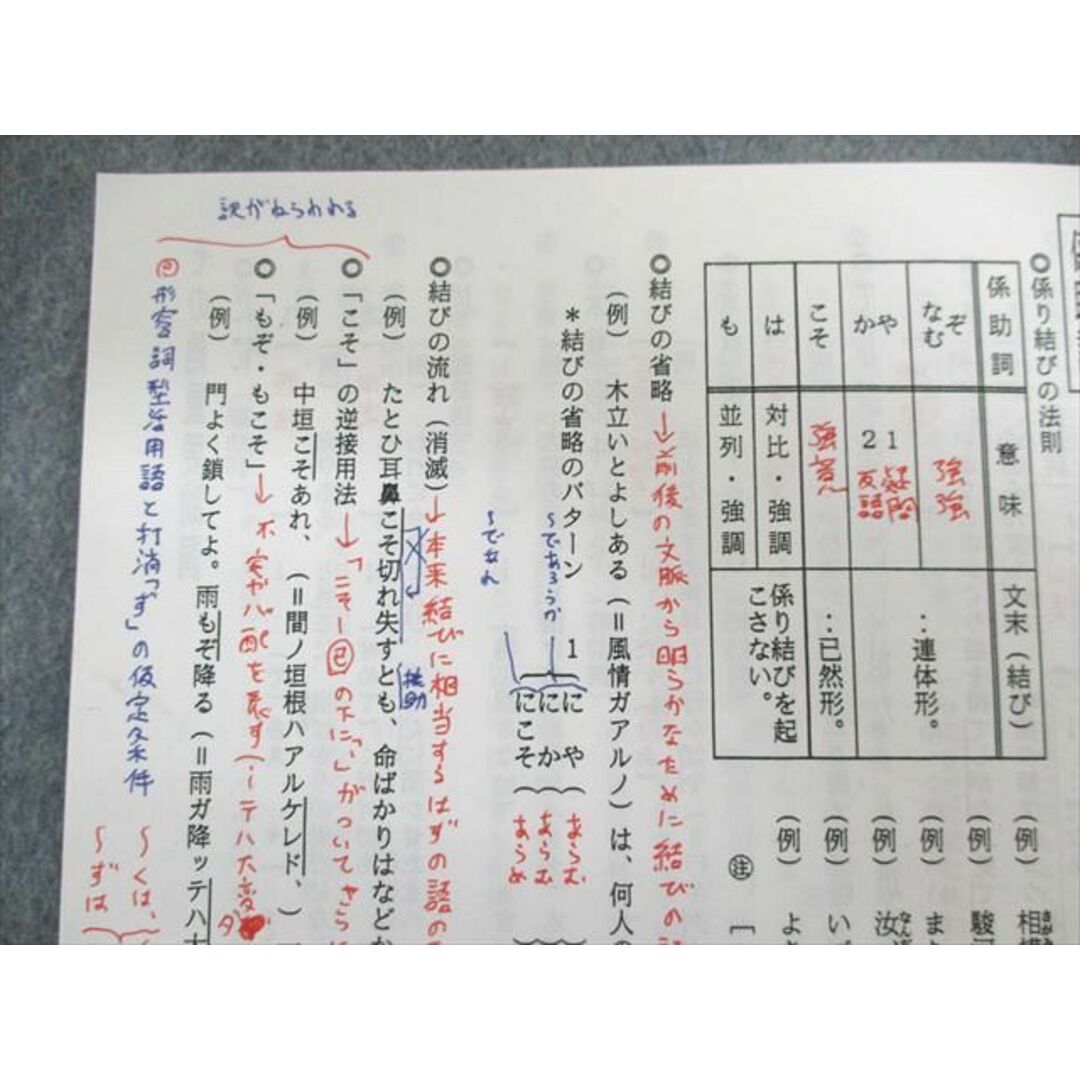 ◎係り結びの法則
係助詞 意味 文末(結び)
ぞ 強
なむ 強
‥連体形。
や 1 疑問
か 2 反語
こそ 強意 ‥已然形。
は 対比・強調
も 並列・強調
係り結びを起こさない。
(例)相模
(例)駿河
(例)また
(例)汝
(例)い
(例)よき
㊟ [
◎結びの省略→前後の文脈から明らかなために結びの
(例) 木立いとよしある(=風情ガアルノ)は、何人の
*結びの省略のパターン 1
にや(あらむ)
にか(あらむ)
にこそ(あらめ)
〜であろうか
〜であれ
◎結びの流れ(消滅)→本来結びに相当するはずの語の
(例) たとひ耳鼻こそ切れ失すとも、命ばかりはなどか
接助
◎「こそ」の逆接用法→「こそー㋑の下に「、」がついてさらに
(例) 中垣こそあれ、(=間ノ垣根ハアルケレド、)
◎「もぞ・もこそ」→不安や心配を表す(〜テハ大変ダ
(例) 門よく鎖してよ。雨もぞ降る(=雨ガ降ッテハ大
訳がねらわれる
◎形容詞型活用語と打消「ず」の仮定条件
〜くは、
〜ずは